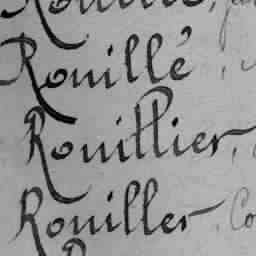 Rouillé,
Rouillier,
Rouiller, Co